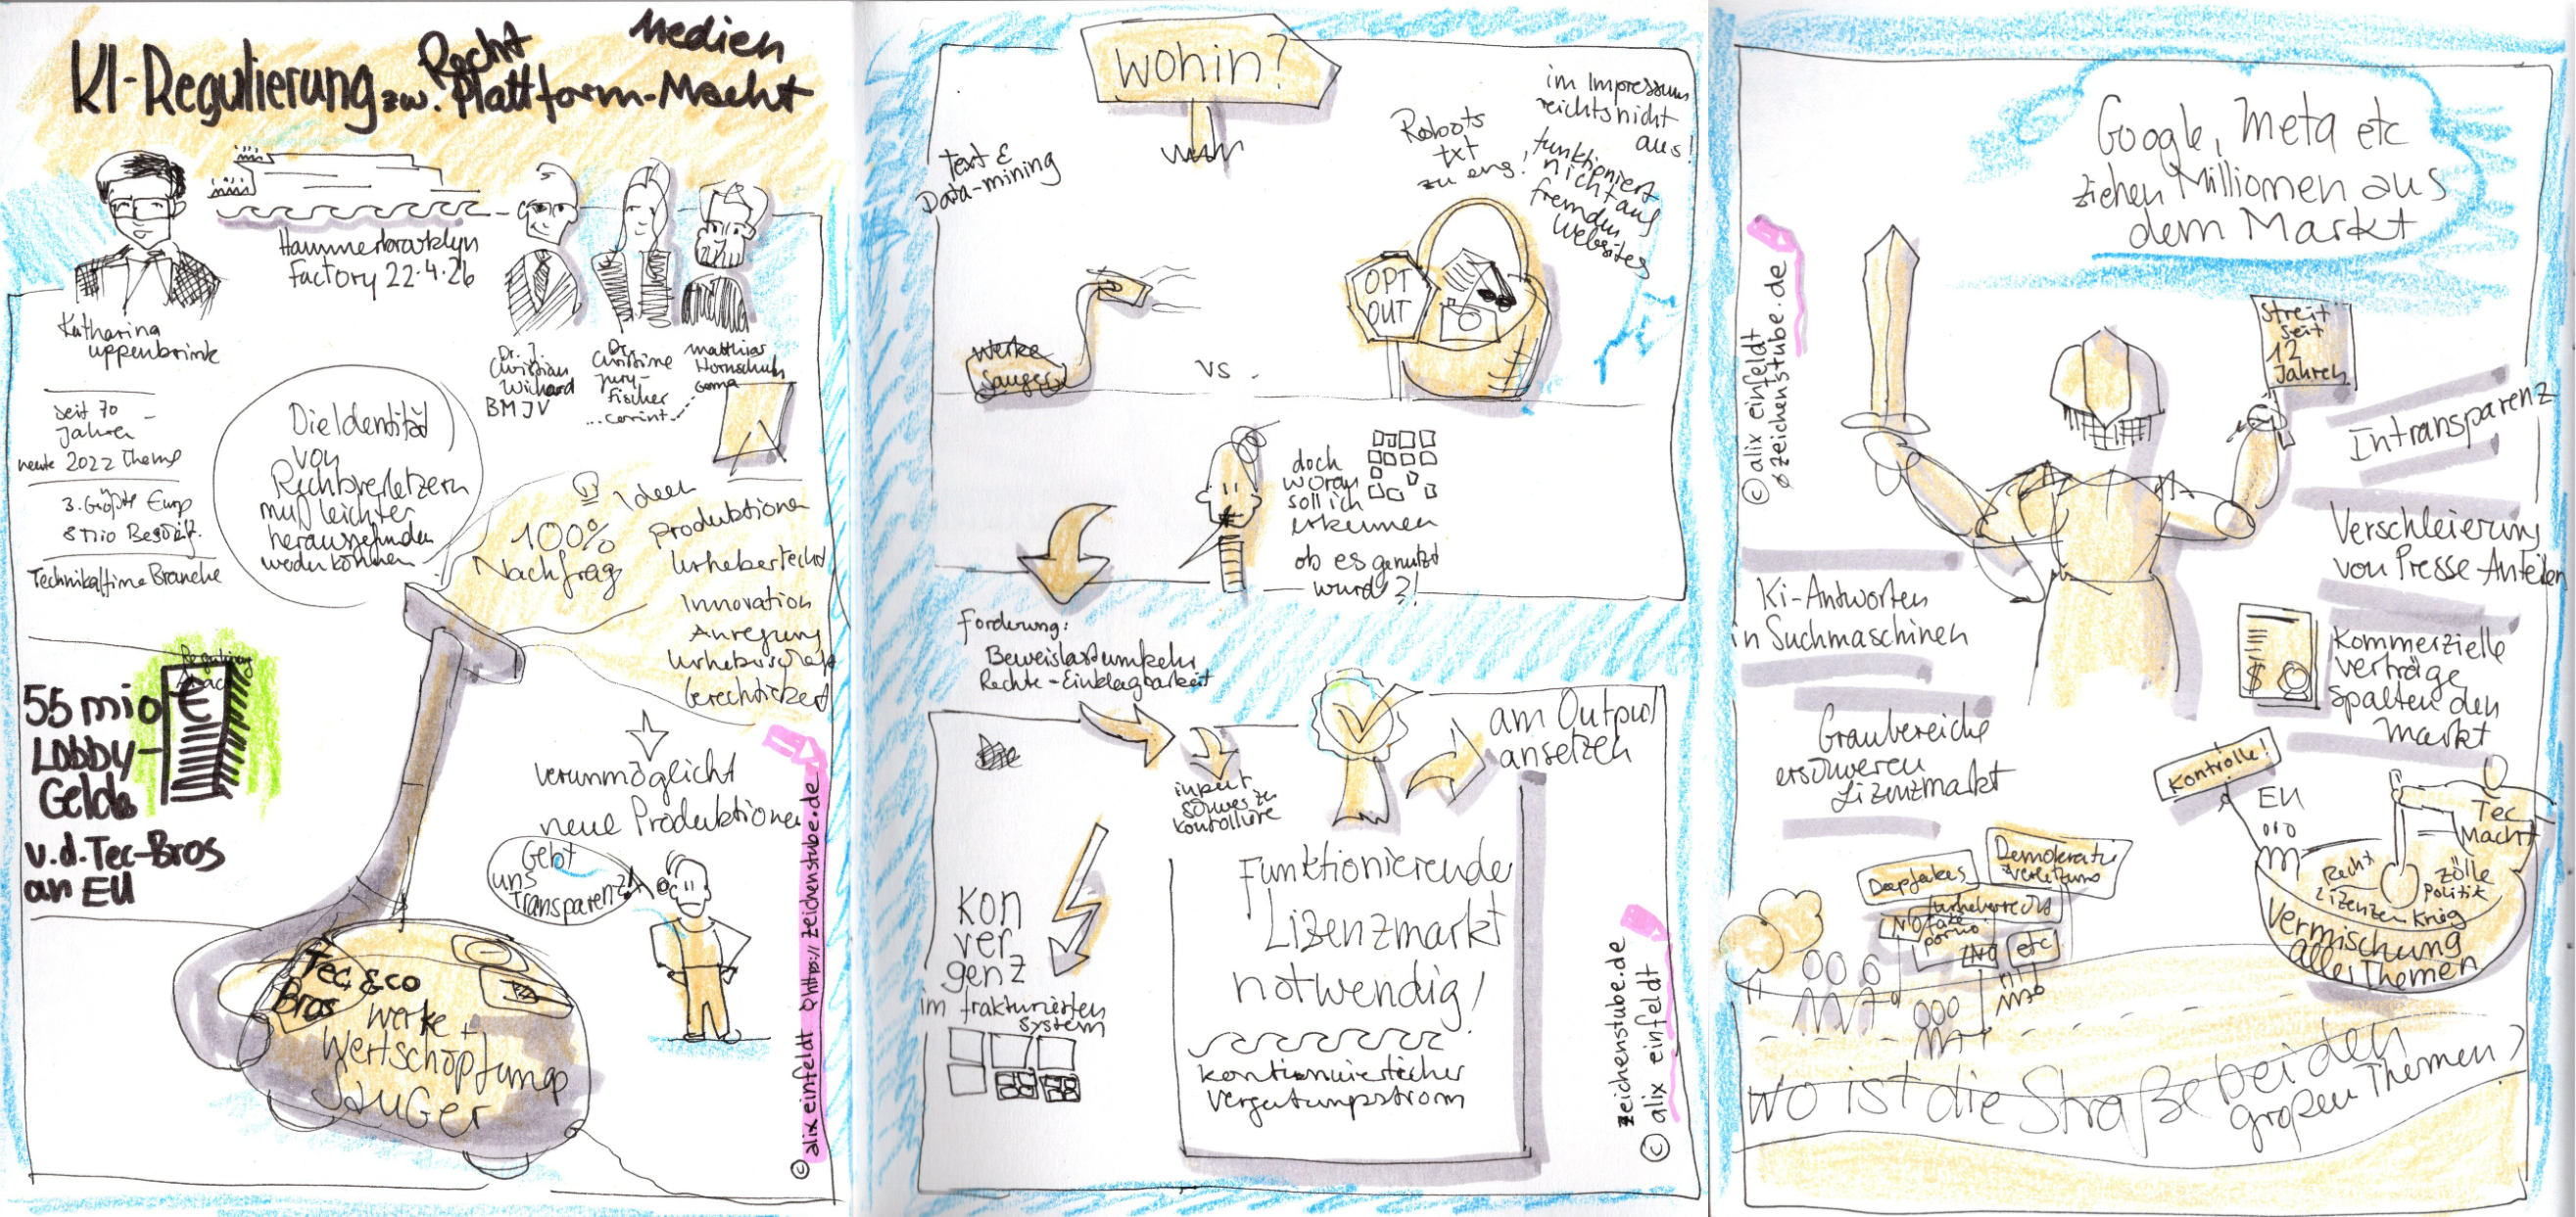 KI-Regulierung zw. Recht Medien
Plattform-Macht
Hammerbrooklyn
Factory 22.4.26
Katharina
uppenbrink
Dr. J.
Christian
Wichard
BMJV
Dr.
Christine
Jury-
Fischer
...corint...
Matthias
Hornschuh
Gema
seit 70
Jahren
heute 2022 Thema
3. Größte Europ
8 Mio Beschäft.
Technikaffine Branche
Die Identität
von
Rechtsverletzern
muß leichter
herausgefunden
werden können
100%
Nachfrag
Ideen
Produktionen
Urheberrecht
Innovation
Anregung
Urheberschaft
55 mio €
Lobby-
Gelder
v.d. Tec-Bros
an EU
verunmöglicht
neue Produktionen
Gebt
uns
Transparenz!
Tec & co
Bros
Werke +
Wertschöpfungs
Sauger
© alix einfeldt @ https://zeichenstube.de
Wohin?
Text &
Data-mining
Roboots
txt
zu eng!
im Impressum
reichts nicht
aus!
funktioniert
nicht auf
fremden
Websites
OPT
OUT
Werke
Sauger
vs.
doch
woran
soll ich
erkennen
ob es genutzt
wurde?!
Forderung:
Beweislastumkehr
Rechte-Einklagbarkeit
input
schwer zu
kontrolliere
am Output
ansetzen
Kon
ver
genz
im frakturierten
system
Funktionierender
Lizenzmarkt
notwendig!
kontinuierlicher
Vergütungsstrom
zeichenstube.de
© alix einfeldt
Google, Meta etc
ziehen Millionen aus
dem Markt
© alix einfeldt
@zeichenstube.de
Streit
seit
12
Jahren
Intransparenz
Verschleierung
von Presse Anteilen
Ki-Antworten
in Suchmaschinen
Kommerzielle
verträge
spalten den
Markt
Graubereiche
erschweren
Lizenzmarkt
Kontrolle!
EU
Tec
Macht
Recht
Lizenzen
Krieg
Zölle
Politik
Vermischung
aller Themen
Deepfakes
Demokratie
verletzung
Urheberrecht
No fake
porno
NO
etc
wo ist die Straße bei den
großen Themen?